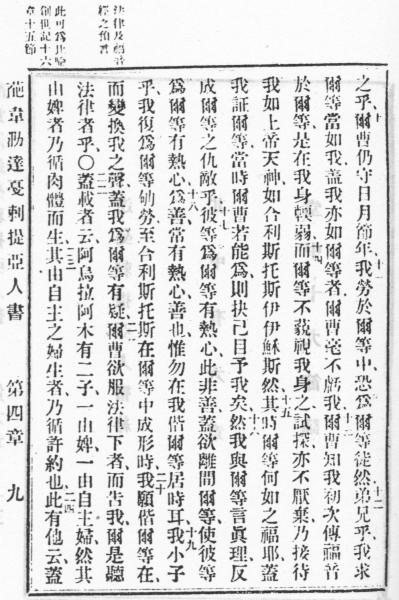 法律及福音
經之預書
此可爲比喻
創世記十六
章十五節
之乎爾曹仍守日月節年我勞於爾等中恐爲爾等徒然弟兄乎我求
爾等當如我蓋我亦如爾等者爾曹毫不虧我爾曹知我初次傳福音
於爾等是在我身輭弱而爾等不藐視我身之試探亦不厭棄乃接待
我如上帝天神如合利斯托斯伊伊穌斯然其時爾等何如之福耶蓋
我証爾等當時爾曹若能爲則抉己目予我矣然我與爾等言眞理反
成爾等之仇敵乎彼等爲爾等有熱心此非善蓋欲離間爾等使彼等
爲爾等有熱心爲善常有熱心善也惟勿在我偕爾等居時耳我小子
乎我復爲爾等劬勞至合利斯托斯在爾等中成形時我願偕爾等在
而變換我之聲蓋我爲爾等有疑爾曹欲服法律下者而告我爾是聽
法律者乎〇蓋載者云阿烏拉阿木有二子一由婢一由自主婦然其
由婢者乃循肉體而生其由自主之婦生者乃循許約也此有他云蓋
葩韋泐達戞剌提亞人書 第四章 九